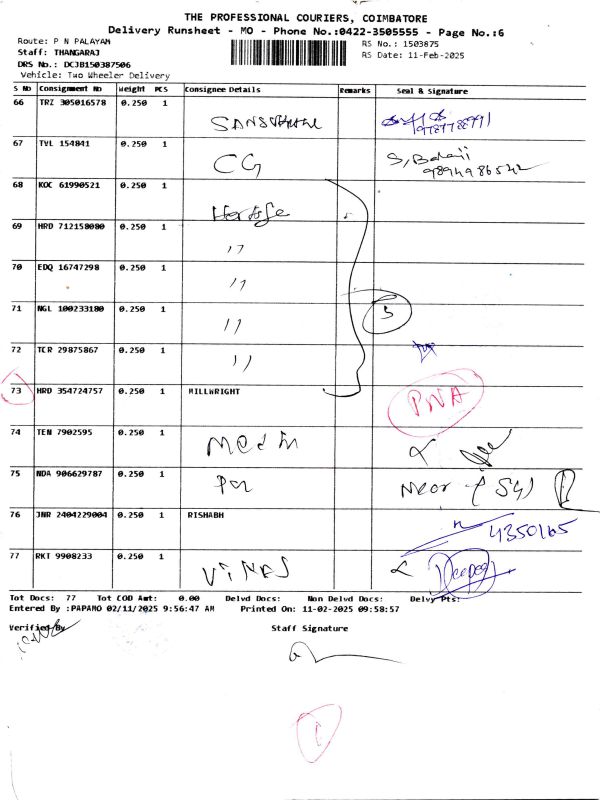 THE PROFESSIONAL COURIERS, COIMBATORE
Delivery Runsheet - MO - Phone No.:0422-3505555 - Page No.:6
Route: P N PALAYAM
RS No.: 1503875
Staff: THANGARAJ
RS Date: 11-Feb-2025
DRS No.: DCJB150387506
Vehicle: Two Wheeler Delivery
S No Consignment No Weight PCS Consignee Details Remarks Seal & Signature
66 TRZ 305016578 0.250 1
9787788991
67 TVL 154841 0.250 1 CG S, Balaji
9894986542
68 KOC 61990521 0.250 1
69 HRD 712158080 0.250 1 ,,
70 EDQ 16747298 0.250 1 ,,
71 NGL 100233180 0.250 1 ,, 5
72 TCR 29875867 0.250 1 ,,
73 HRD 354724757 0.250 1 MILLWRIGHT PNA
74 TEN 7902595 0.250 1
75 NDA 906629787 0.250 1
76 JNR 2404229004 0.250 1 RISHABH 4350165
77 RKT 9908233 0.250 1 Deepa
Tot Docs: 77 Tot COD Amt: 0.00 Delvd Docs: Non Delvd Docs: Delvy Pts:
Entered By :PAPAMO 02/11/2025 9:56:47 AM Printed On: 11-02-2025 09:58:57
Verified By Staff Signature